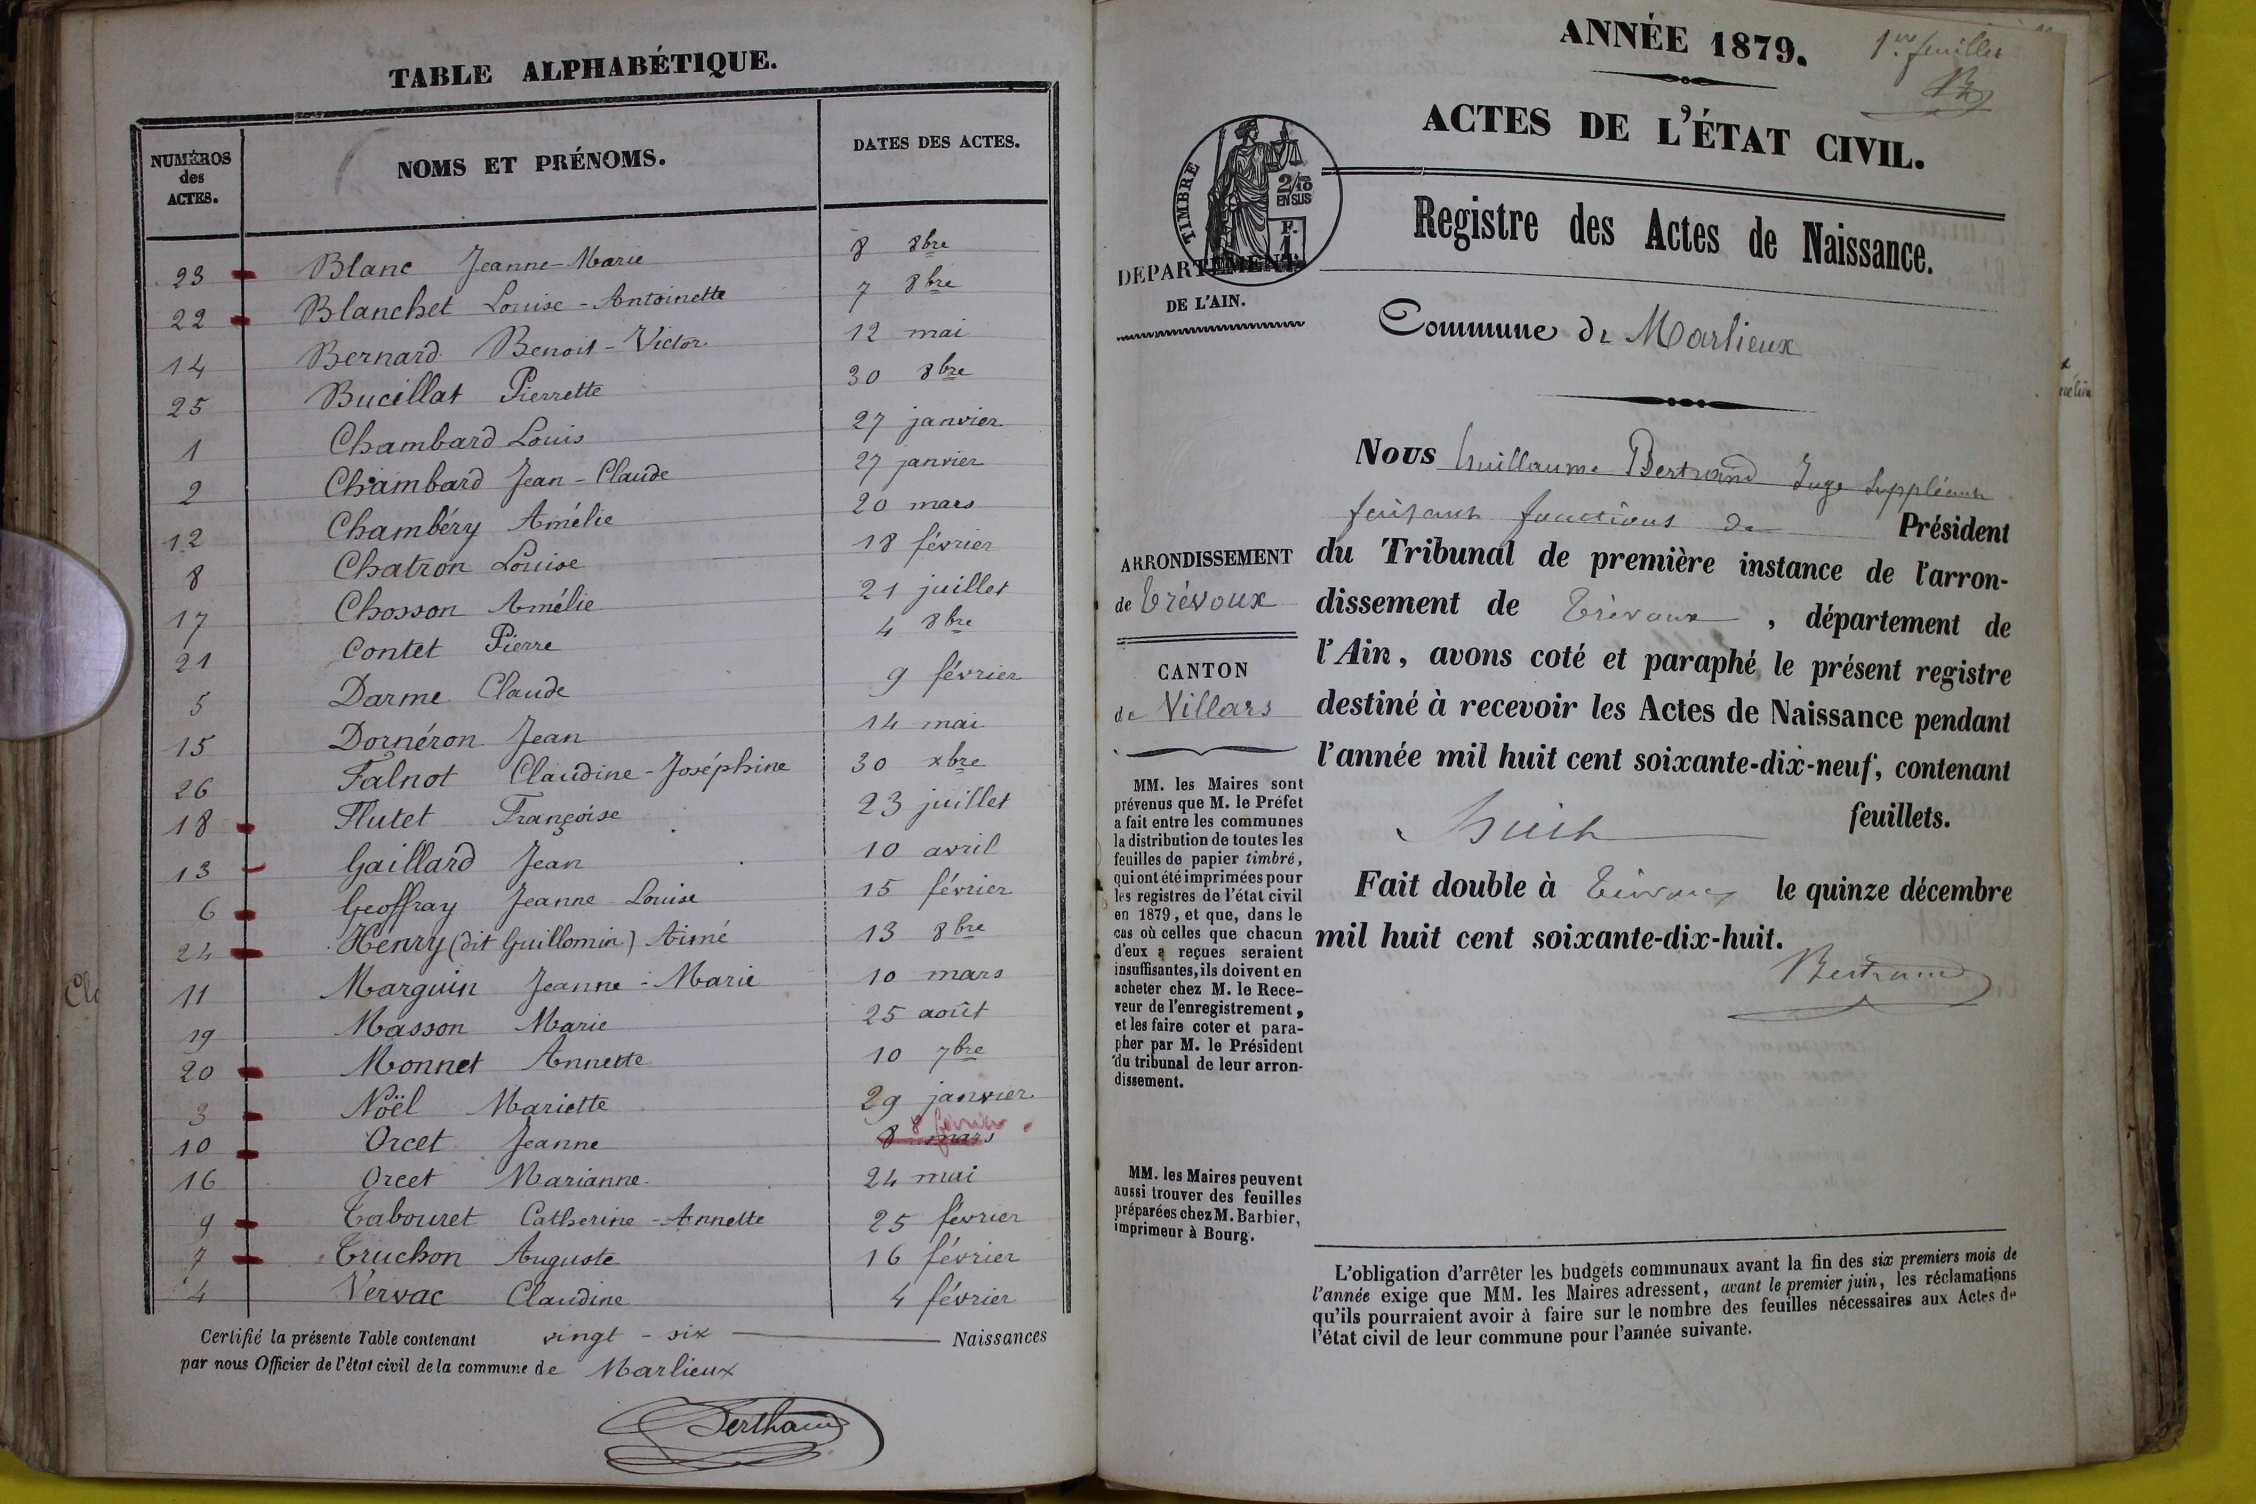 TABLE ALPHABÉTIQUE.
NUMÉROS des ACTES. NOMS ET PRÉNOMS. DATES DES ACTES.
23 Blanc Jeanne-Marie 8 8bre
22 Blanchet Louise-Antoinette 7 8bre
14 Bernard Benoit-Victor 12 mai
25 Bucillat Pierrette 30 8bre
1 Chambard Louis 27 janvier
2 Chambard Jean-Claude 27 janvier
12 Chambéry Amélie 20 mars
8 Chatron Louise 18 février
17 Chosson Amélie 21 juillet
21 Contet Pierre 4 8bre
5 Darme Claude 9 février
15 Dornéron Jean 14 mai
26 Falnot Claudine-Joséphine 30 xbre
18 Flutet Françoise 23 juillet
13 Gaillard Jean 10 avril
6 Geoffray Jeanne Louise 15 février
24 Henry (dit Guillomin) Aimé 13 8bre
11 Marguin Jeanne-Marie 10 mars
19 Masson Marie 25 août
20 Monnet Annette 10 7bre
3 Noël Mariette 29 janvier
8 février
10 Orcet Jeanne 8 mars
16 Orcet Marianne 24 mai
9 Tabouret Catherine-Annette 25 février
7 Truchon Auguste 16 février
4 Vervac Claudine 4 février
Certifié la présente Table contenant vingt-six Naissances
par nous Officier de l'état civil de la commune de Marlieux
ANNÉE 1879.
1er feuillet
ACTES DE L'ÉTAT CIVIL.
TIMBRE
2/10
EN SUS
F.
1
Registre des Actes de Naissance.
DEPARTEMENT
DE L'AIN.
Commune de Marlieux
Nous Guillaume Bertrand Juge Suppléant
faisant fonctions de Président
du Tribunal de première instance de l'arron-
dissement de Trévoux, département de
l'Ain, avons coté et paraphé le présent registre
destiné à recevoir les Actes de Naissance pendant
l'année mil huit cent soixante-dix-neuf, contenant
huit feuillets.
Fait double à Trévoux le quinze décembre
mil huit cent soixante-dix-huit.
Bertrand
ARRONDISSEMENT
de Trévoux
CANTON
de Villars
MM. les Maires sont
prévenus que M. le Préfet
a fait entre les communes
la distribution de toutes les
feuilles de papier timbré,
qui ont été imprimées pour
les registres de l'état civil
en 1879, et que, dans le
cas où celles que chacun
d'eux a reçues seraient
insuffisantes, ils doivent en
acheter chez M. le Rece-
veur de l'enregistrement,
et les faire coter et para-
pher par M. le Président
du tribunal de leur arron-
dissement.
MM. les Maires peuvent
aussi trouver des feuilles
préparées chez M. Barbier,
imprimeur à Bourg.
L'obligation d'arrêter les budgets communaux avant la fin des six premiers mois de
l'année exige que MM. les Maires adressent, avant le premier juin, les réclamations
qu'ils pourraient avoir à faire sur le nombre des feuilles nécessaires aux Actes de
l'état civil de leur commune pour l'année suivante.